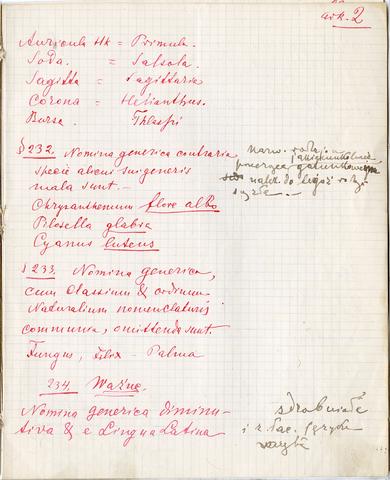 ark. 2
Auricula Hk = Primula.
Soda. = Salsola.
Sagitta = Sagittaria
Corona = Helianthus.
Bursa. Thlaspi
§ 232. Nomina generica contraria
speciei alicui sui generis
mala sunt. -
Chrysanthemum flore albo
Pilosella glabra
Cyanus luteus
nazw. rodzaj.
przecząca gatunkowem
należ. do tegoż rodz.
są złe. -
§ 233. Nomina generica,
cum Classium & ordinum
Naturalium nomenclaturis
communia, omittenda sunt.
Fungus, Filix - Palma
234. Ważne.
Nomina generica diminu-
tiva & e Lingua Latina
zdrobniałe
i z łac. języka